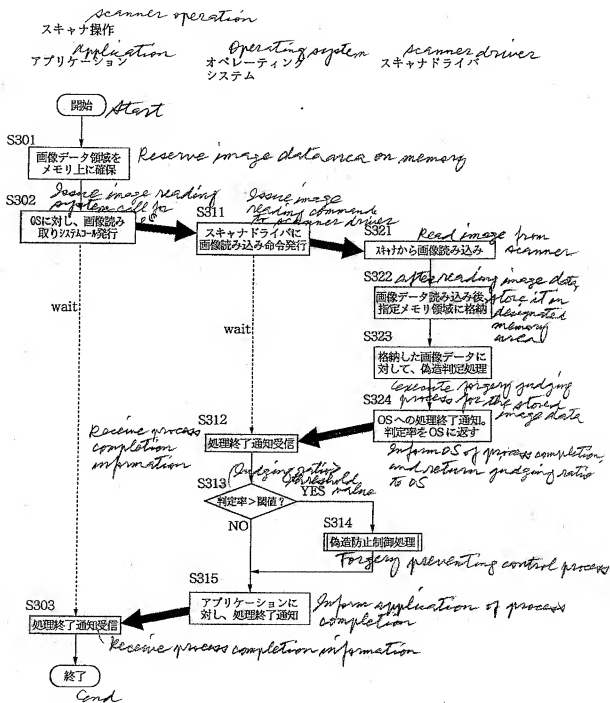 scanner operation
スキャナ操作
Application
アプリケーション
Operating system
オペレーティング
システム
scanner driver
スキャナドライバ
開始
Start
S301
画像データ領域を
メモリ上に確保
Reserve image data area on memory
S302
Issue image reading
system call for
OS
OSに対し、画像読み
取りシステムコール発行
S311
Issue image
reading command
to scanner driver
スキャナドライバに
画像読み込み命令発行
S321
Read image from
scanner
スキャナから画像読み込み
S322
after reading image data,
store it in
designated
memory
area
画像データ読み込み後、
指定メモリ領域に格納
wait
wait
S323
格納した画像データに
対して、偽造判定処理
execute forgery judging
process for the stored
image data
S324
OSへの処理終了通知。
判定率をOSに返す
Inform OS of process completion,
and return judging ratio
to OS
S312
処理終了通知受信
Receive process
completion
information
S313
Judging ratio>
threshold
value
判定率>閾値?
YES
NO
S314
偽造防止制御処理
Forgery preventing control process
S315
アプリケーションに
対し、処理終了通知
Inform application of process
completion
S303
処理終了通知受信
Receive process completion information
終了
End